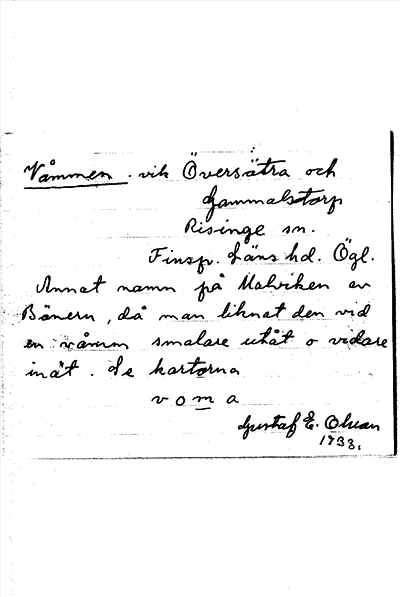 Våmmen . vik Översätra och
Gammalstorp
Risinge sn.
Finsp. Läns hd. Ögl.
Annat namn på Malviken av
Bönern, då man liknat den vid
en våmm smalare utåt o vidare
inåt. Se kartorna
v o m a
Gustaf E. Olsson
1933.